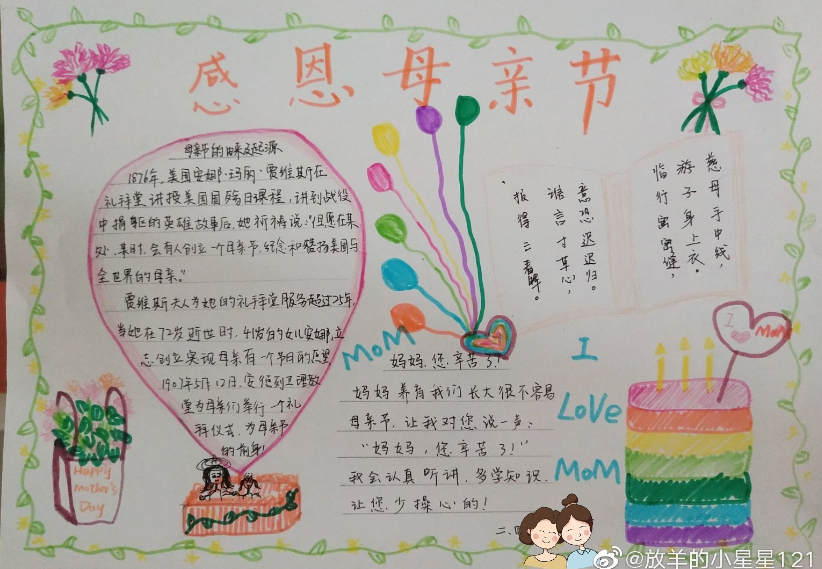 感恩母亲节
母亲节的由来及起源
1876年,美国安娜·玛丽·贾维斯在
礼拜堂讲授美国国殇日课程,讲到战役
中捐躯的英雄故事后,她祈祷说:"但愿在某
处、某时,会有人创立一个母亲节,纪念和赞扬美国与
全世界的母亲。"
贾维斯夫人为她的礼拜堂服务超过25年,
当她在72岁逝世时,41岁的女儿安娜,立
志创立实现母亲有一个节日的愿望
1907年5月12日,安德烈卫理教
堂为母亲们举行一个礼
拜仪式,为母亲节
的前身!
慈母手中线,
游子身上衣。
临行密密缝,
意恐迟迟归。
谁言寸草心,
报得三春晖。
MoM
妈妈,您辛苦了!
妈妈养育我们长大很不容易
母亲节,让我对您说一声:
"妈妈,您辛苦了!"
我会认真听讲,多学知识,
让您少操心的!
I
LoVe
MoM
I
MoM
Happy
Mother's
Day
@放羊的小星星121